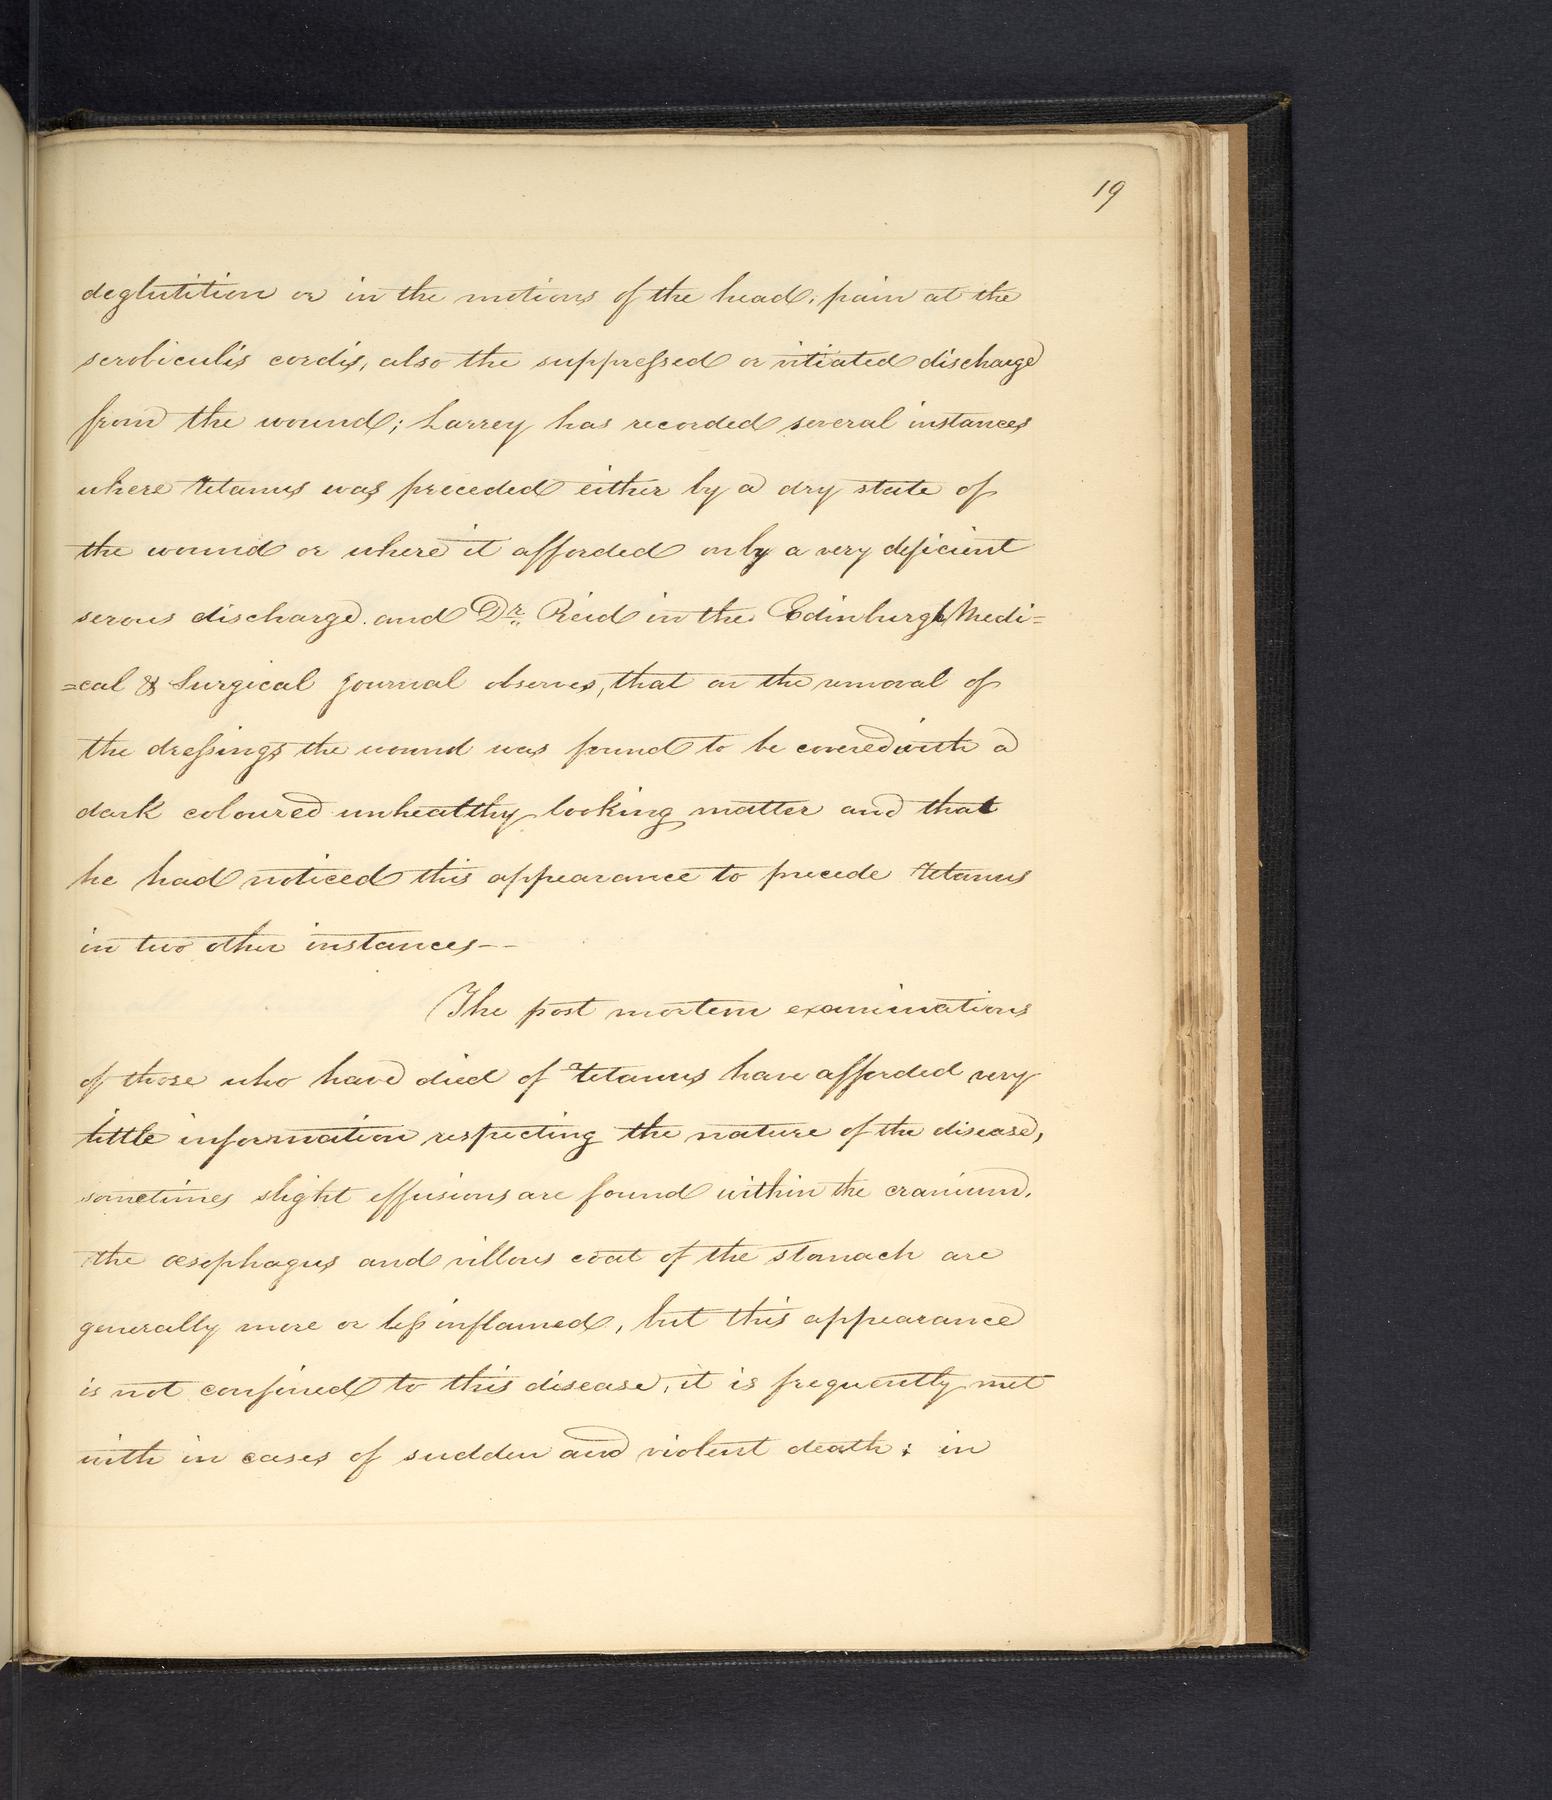 19
deglutition or in the motions of the head; pain at the
scrobiculis cordis, also the suppressed or vitiated discharge
from the wound; Larrey has recorded several instances
where Tetanus was preceded either by a dry state of
the wound or where it afforded only a very deficient
serous discharge. and Dr. Reid in the Edinburgh Medi=
=cal & Surgical Journal observes, that on the removal of
the dressings the wound was found to be covered with a
dark coloured unhealthy looking matter and that
he had noticed this appearance to precede Tetanus
in two other instances--
The post mortem examinations
of those who have died of Tetanus have afforded very
little information respecting the nature of the disease,
sometimes slight effusions are found within the cranium.
the œsophagus and villous coat of the stomach are
generally more or less inflamed, but this appearance
is not confined to this disease, it is frequently met
with in cases of sudden and violent death; in